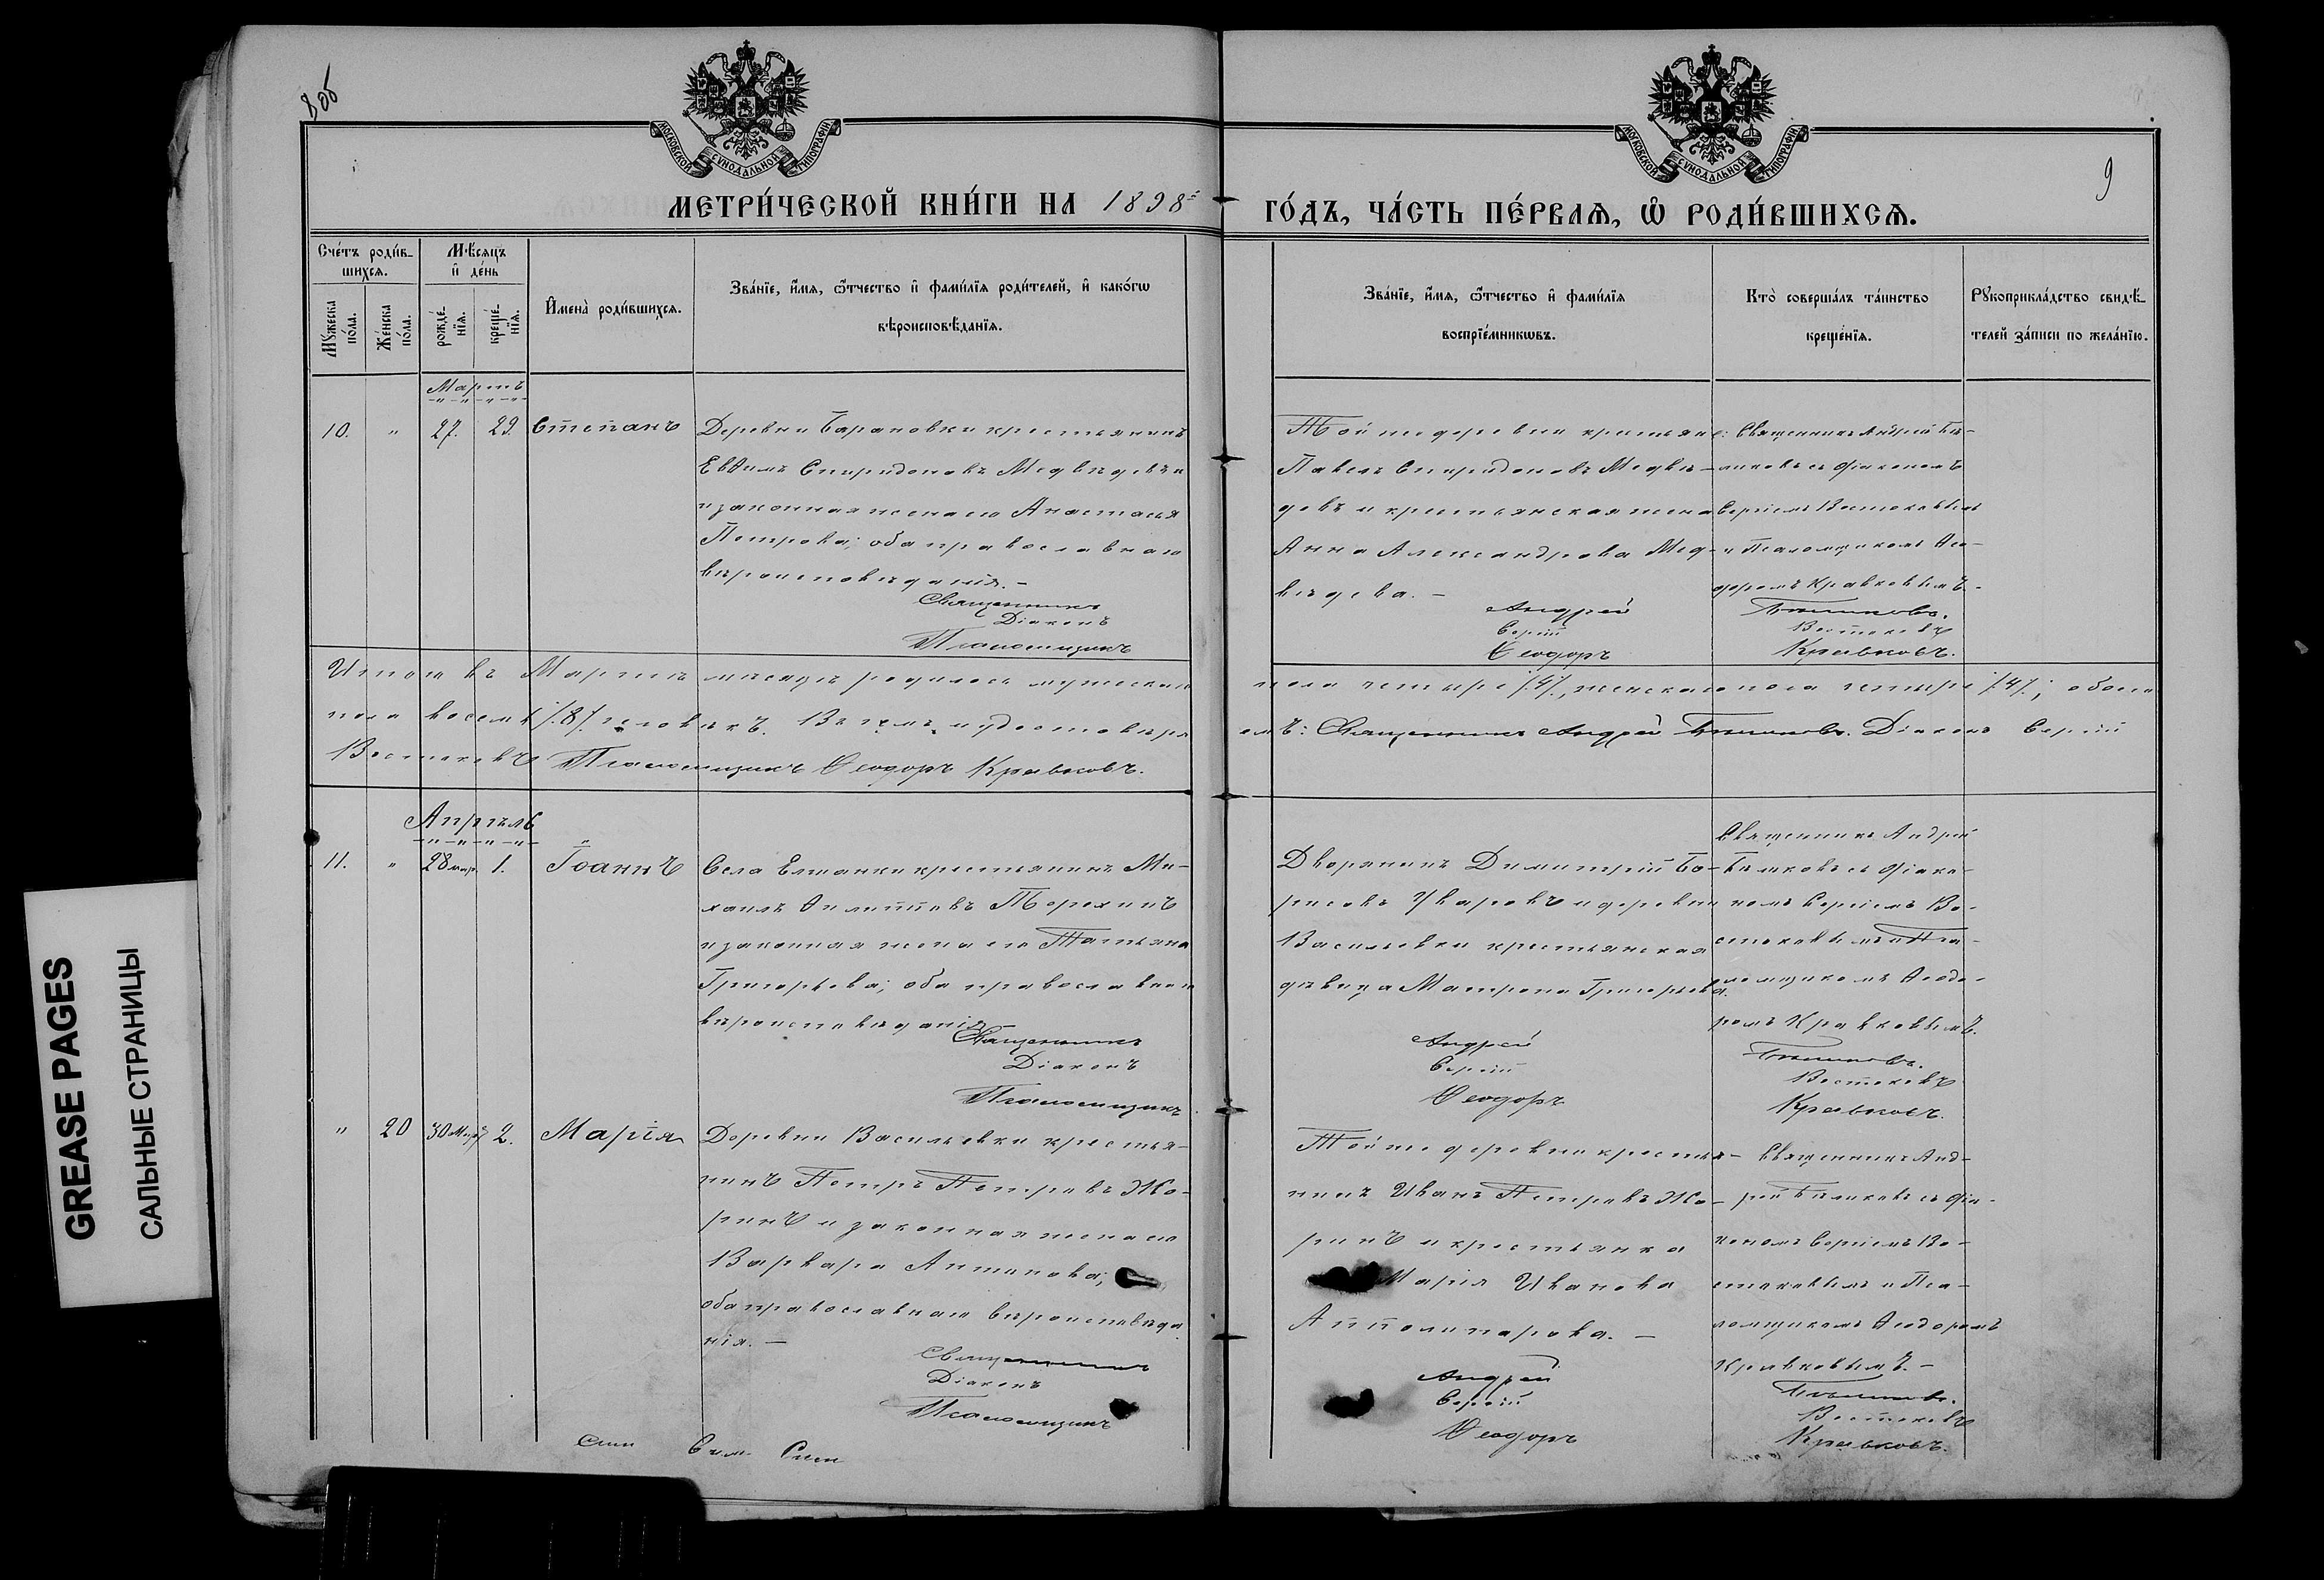 8об
МОСКОВСКОЙ СѴНОДАЛЬНОЙ ТИПОГРАФІИ
МОСКОВСКОЙ СѴНОДАЛЬНОЙ ТИПОГРАФІИ
9
МЕТРИ́ЧЕСКОЙ КНИ́ГИ НА 1898й
ГО́ДЪ, ЧА́СТЬ ПЕ́РВАѦ, Ѡ҆ РОДИ́ВШИХСѦ.
Сче́тъ роди́в-
шихсѧ.
Мѣ́сяцъ
и҆ де́нь
Мꙋ́жеска
по́ла.
Же́нска
по́ла.
рожде́-
нїѧ.
креще́-
нїѧ.
И҆мена̀ роди́вшихсѧ.
Зва́нїе, и҆́мѧ, ѻ҆́тчество и҆ фами́лїѧ роди́телей, и҆ како́гѡ
вѣроисповѣ́данїѧ.
Зва́нїе, и҆́мѧ, ѻ҆́тчество и҆ фами́лїѧ
воспрїе́мникѡвъ.
Кто̀ соверша́лъ та́инство
креще́нїѧ.
Рꙋкоприкла́дство свидѣ́-
телей за́писи по жела́нїю.
Мартъ
10. " 27. 29. Степанъ
Деревни Барановки крестьянинъ
Евѳимъ Спиридоновъ Медвѣдевъ и
и законная жена его Анастасья
Петрова; оба православнаго
вѣроисповѣданія. -
Священникъ
Діаконъ
Псаломщикъ
Той же деревни крестьяне:
Павелъ Спиридоновъ Медвѣ-
девъ и крестьянская жена
Анна Александрова Мед-
вѣдева. -
Андрей
Сергій
Ѳеодоръ
Священникъ Андрей
съ діакономъ
Сергіемъ Востоковымъ
и Псаломщикомъ Ѳео-
доромъ Кравковымъ. -
Востоковъ
Кравковъ.
Итого въ Мартѣ мѣсяцѣ родилось мужескаго
пола четыре /4/, женскаго пола четыре /4/; обоего
пола восемь /8/ человѣкъ. Въ чемъ и удостовѣря
емъ: Священникъ Андрей Діаконъ Сергій
Востоковъ Псаломщикъ Ѳеодоръ Кравковъ.
Апрѣль
11. " 28 мар. 1. Іоаннъ
Села Елшанки крестьянинъ Ми-
хаилъ Филипповъ Терехинъ
и законная жена его Татьяна
Григорьева; оба православнаго
вѣроисповѣданія
Священникъ
Діаконъ
Псаломщикъ
Дворянинъ Димитрій Бо-
рисовъ Уваровъ и деревни
Васильевки крестьянская
дѣвица Матрона Григорьева.
Андрей
Сергій
Ѳеодоръ
Священникъ Андрей
съ діако-
номъ Сергіемъ Во-
стоковымъ и Пса-
ломщикомъ Ѳеодо-
ромъ Кравковымъ.
Востоковъ
Кравковъ.
" 20 30 Мар. 2. Марія
Деревни Васильевки крестья-
нинъ Петръ Петровъ Жо-
ринъ и законная жена его
Варвара Антипова;
оба православнаго вѣроисповѣда
нія. -
Священникъ
Діаконъ
Псаломщикъ
Той же деревни крестья-
нинъ Иванъ Петровъ Жо-
ринъ и крестьянка
Марія Иванова
Апполинарова. -
Андрей
Сергій
Ѳеодоръ
Священникъ Анд-
рей съ діа-
кономъ Сергіемъ Во-
стоковымъ и Пса-
ломщикомъ Ѳеодоромъ
Кравковымъ. -
Востоковъ
Кравковъ.
GREASE PAGES
САЛЬНЫЕ СТРАНИЦЫ